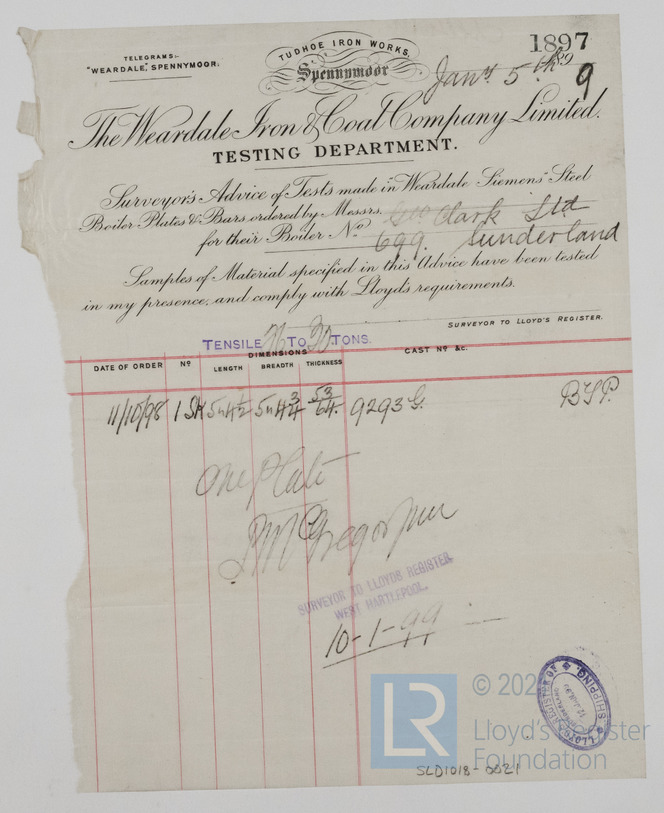 TELEGRAMS:-
"WEARDALE," SPENNYMOOR.
TUDHOE IRON WORKS,
Spennymoor
1897
Jany 5th 189
9
The Weardale Iron & Coal Company Limited.
TESTING DEPARTMENT.
Surveyor's Advice of Tests made in "Weardale Siemens" Steel
Boiler Plates & Bars ordered by Messrs. Geo Clark Ltd
for their Boiler No 699. Sunderland
Samples of Material specified in this Advice have been tested
in my presence, and comply with Lloyd's requirements.
SURVEYOR TO LLOYD'S REGISTER.
TENSILE 26 TO 30 TONS.
DIMENSIONS
DATE OF ORDER No LENGTH BREADTH THICKNESS CAST No &c.
11/10/98 1 SK 5" 4 1/2 5" 4 3/4 53/64 9293 G. BSP.
One Plate
McGregor
SURVEYOR TO LLOYDS REGISTER.
WEST HARTLEPOOL.
10-1-99
LLOYDS REGISTER OF SHIPPING.
LR
© 202
Lloyd's Register
Foundation
SLD1018-0021